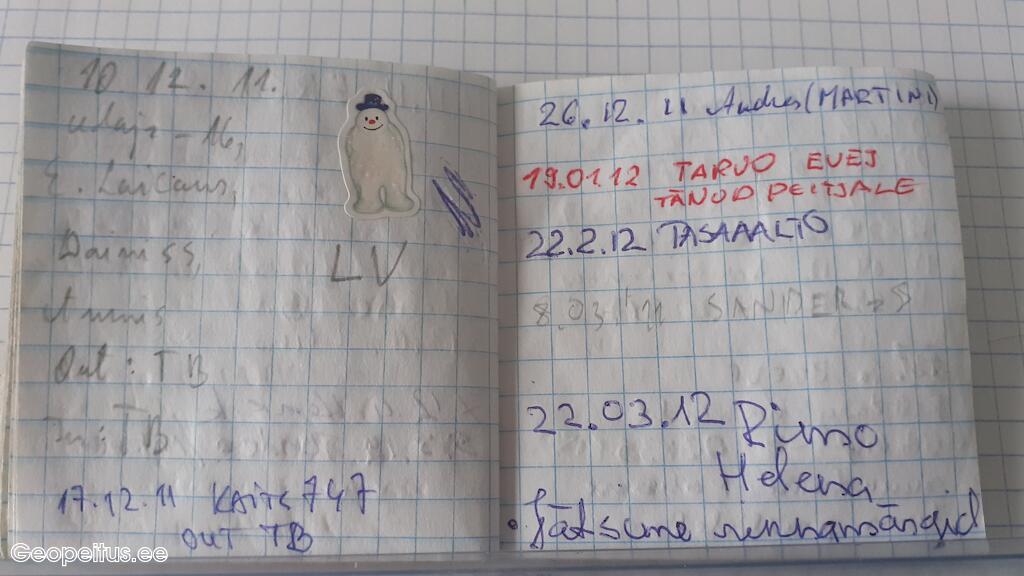 10.12.11.
udajs-16,
E. Laicāns,
Dainiss,
Annis
Out: TB
In: TB
LV
17.12.11 KAITS747
OUT TB
26.12.11 Andres (MARTINI)
19.01.12 TARVO EVEJ
TÄNUD PEITJALE
22.2.12 TASAAALTO
8.03 SANDER
22.03.12 Rimo
Helena
• Jätsime
Geopeitus.ee